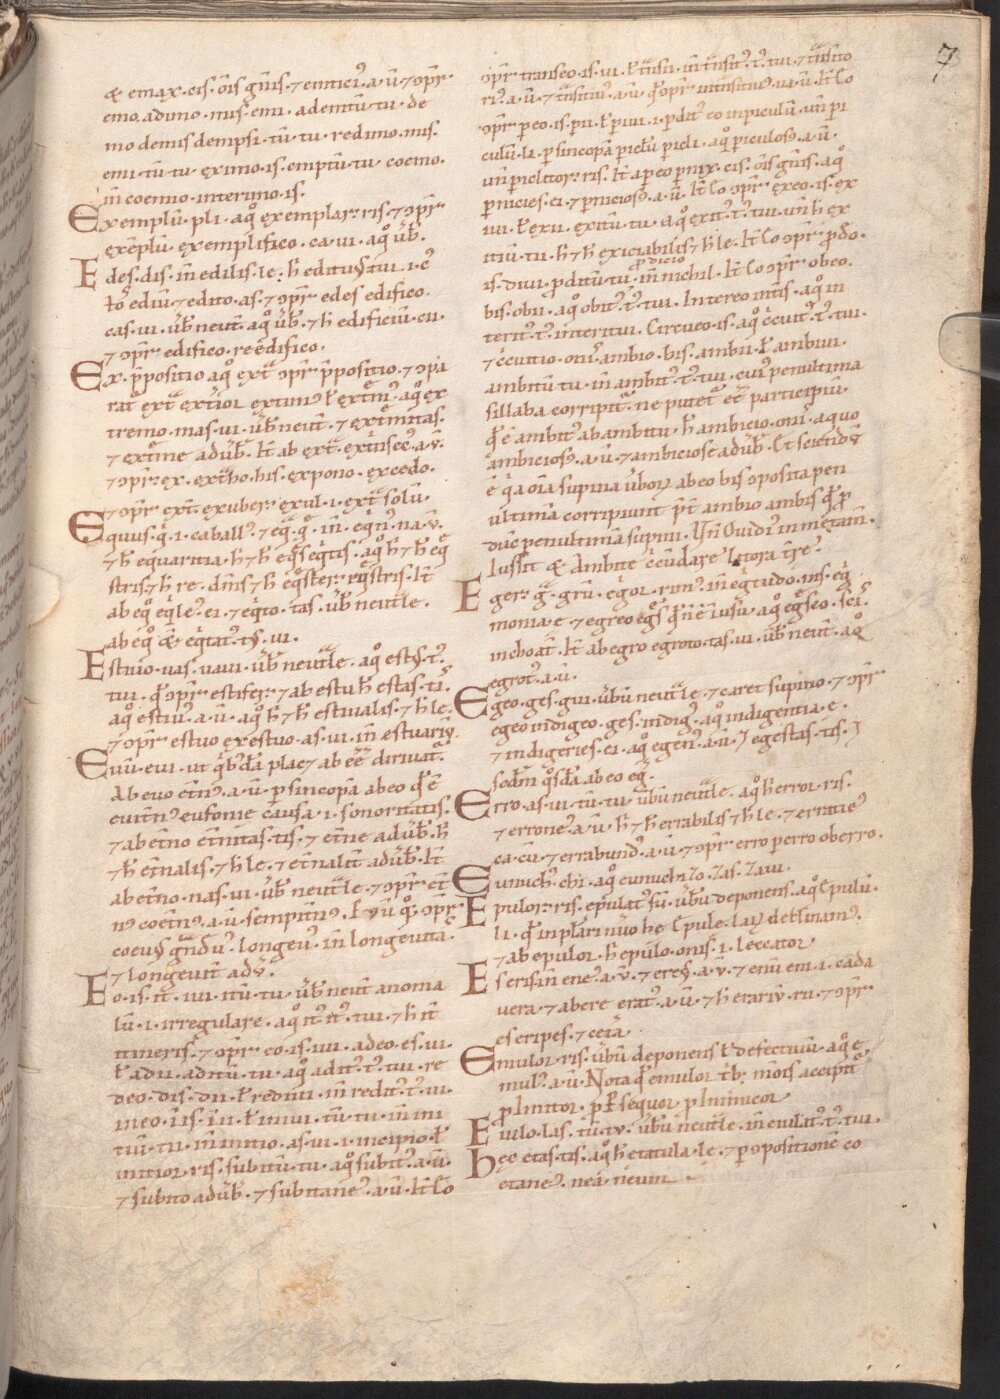 7
& emax. cis. oīs gn̄is. ⁊ emticiꝰ. a. ū. ⁊ ɔpr̄
emo. adimo. mis. emi. ademtū. tu. de
mo demis dempsi. tū. tu. redimo. mis.
emi. tū. tu. eximo. is. emptū. tu. coemo.
in coemo. interimo. is.
Exemplū. pli. aq̊ exemplar. ris. ⁊ ɔpr̄
exēplū. exemplifico. ca. ui. aq̊ ūb̄.
Edes. dis. in̄ edilis. le. h̄
ediū. ⁊ edito. as. ⁊ ɔpr̄ edes edifico.
cas. ui. ūb̄ neut̄ aq̊ ūb̄. ⁊ h̄ edificiū. cii.
⁊ ɔpr̄ edifico. reedifico.
Ex. p̄positio aq̊ ext̄ ɔpr̄ p̄positio. ⁊ ɔpa
rat̄ ext̄ exterior extimꝰ ł aq̊ ex
tremo. mas. ui. ūb̄ neut̄. ⁊ extremitas.
⁊ adūb̄. it̄ ab extᷓ. extⁱnsecꝰ. a. v.
⁊ ɔpr̄. ex. extᷓho. his. expono. excedo.
⁊ ɔpr̄ ext̄. exuber. exul. i. extᷓ solū.
Equus. q̇. i. caballꝰ. ⁊ eq̄. q̄. in. eqⁱnꝰ. na. v.
⁊ h̄ equaritia. h̄ ⁊ h̄ aq̊ h̄ ⁊ h̄ eq̄
stris. ⁊ h̄ re. ⁊ h̄ eq̄ster. eq̄stris. it̄
ab eq̊ ei. ⁊ eqⁱto. tas. ūb̄ neut̄le.
ab eq̊ eqⁱtatꝰ. tꝰ. ui.
Estuo. uas. uaui. ūb̄ neut̄le. aq̊ estꝰ. tꝰ.
tui. q̄ ɔpr̄ estifer. ⁊ ab estu h̄ estas. tis.
aq̊ estiuꝰ. a. ū. aq̊ h̄ ⁊ h̄ estiualis. ⁊ h̄ le.
⁊ ɔpr̄ estuo exestuo. as. ui. in̄ estuariū.
Euū. eui. ut qⁱb'dā plac& ab e& diriuat̄.
Ab euo etn̄ꝰ. a. ū. p sincopā abeo q̄ ē
euitn̄ꝰ eufonie causa. i. sonoritatis.
⁊ ab etn̄o etn̄itas. tis. ⁊ etn̄e adūb̄. h̄
⁊ h̄ etn̄alis. ⁊ h̄ le. ⁊ etn̄alit̄ adūb̄. it̄
ab etn̄o. nas. ui. ūb̄ neut̄le ⁊ ɔpr̄ et̄
nꝰ coetn̄ꝰ. a. ū. sempitn̄ꝰ. Euū q̊. ɔpr̄
coeuꝰ gn̄duꝰ. longeuꝰ. in̄ longeuita.
⁊ longeuit̄ adū.
Eo. is. it. iui. itū. tu. ūb̄ neut̄ anoma
lū. i. irregulare. aq̊ itꝰ itꝰ. tui. ⁊ h̄ it̄
itineris. ⁊ ɔpr̄ eo. is. iui. adeo. es. ui.
ł adii. aditū. tu. aq̊ aditꝰ. tꝰ. tui. re
deo. dis. dii. ł rediui. in̄ reditꝰ. tꝰ. ui.
ineo. iis. in̄. ł iniui. tū. tu. in̄ ini
tiū. tii. in̄ initio. as. ui. i. incipio. ł
initior. ris. subitū. tu. aq̊ subitꝰ. a. ū.
⁊ subito adūb̄. ⁊ subitaneꝰ. a. ū. it̄ eo
ɔpr̄ transeo. is. ui. ł tᷓnsii. in̄ tᷓnsitꝰ. tꝰ. tui. ⁊ tᷓnsito
riꝰ. a. ū. ⁊ tᷓnsitiuꝰ. a. ū. q̄ ɔpr̄ intᷓnsitiuꝰ. ua. ū. it̄ eo
ɔpr̄ peo. is. pii. ł piui. i. pditꝰ eo in piculū. un̄ pi
culū. li. p sincopā piclū picli. aq̊ piculosꝰ. a. ū.
un̄ piclitor. ris. it̄ a peo pnix. cis. oīs gn̄is. aq̊
pnicies. ei. ⁊ pniciosꝰ. a. ū. it̄ eo ɔpr̄ exeo. is. ex
iui. ł exii. exitū. tu. aq̊ exitꝰ. tꝰ. tui. un̄ h̄ ex
itiū. tii. h̄ ⁊ h̄ exiciabilis ⁊ h̄ le. it̄ eo ɔpr̄ pdo.
pdicio
is. diui. pditū. tu. in̄ nichil. it̄ eo ɔpr̄ obeo.
bis. obii. aq̊ obitꝰ. tꝰ. tui. Intereo int̄is. aq̊ in
teritꝰ. tꝰ. interitui. Circueo. is. aq̊ cⁱcuitꝰ. tꝰ. tui.
⁊ cⁱcuitio. onis. ambio. bis. ambii. ł ambiui.
ambitū. tu. in̄ ambitꝰ. tꝰ. tui. cuiꝰ penultima
sillaba corripit̄. ne putet̄ eē participiū.
q̄ ē ambitꝰ ab ambitu. h̄ ambicio. onis. a quo
ambiciosꝰ. a. ū. ⁊ ambiciose adūb̄. Et sciendū
ē qᷓ oīa supina ūborꝝ ab eo bis ɔposita pen
ultimā corripiunt p̄t ambio ambis q̄
ducit penultimā supini. Un̄ Ouidiꝰ in metam̄.
Iussit & Ambite cⁱcūdare litora tr̄e.
Eger. gᷓ. grū. egror. rimꝰ. in̄ egⁱtudo. inis. eg̊
monia. e. ⁊ egreo egᵉs q̄ ī usu. aq̊ egᵉseo. seis.
inchoāt. it̄ ab egro egroto. tas. ui. ūb̄ neut̄. aq̊
egrotꝰ. a. ū.
Egeo. ges. gui. ūbū neut̄le. ⁊ caret supino. ⁊ ɔpr̄
egeo indigeo. ges. indigꝰ. aq̊ indigentia. e.
⁊ indigeries. ei. aq̊ egenꝰ. a. ū. ⁊ egestas. tis. ⁊
scd̄m q̊sdā ab eo eg̊.
Erro. as. ui. tū. tu. ūbū neut̄le. aq̊ h̄ error. ris.
⁊ erroneꝰ. a. ū. h̄ ⁊ h̄ errabilis ⁊ h̄ le. ⁊ erraticꝰ
ca. cū. ⁊ errabundꝰ. a. ū. ⁊ ɔpr̄ erro perro oberro.
Eunuchꝰ. chi. aq̊ eunuchizo. zas. zaui.
Epulor. ris. epulatꝰ sū. ūbū deponens. aq̊ epulū.
li. q̄ in plᵃri nūo hę epule. laꝝ declinam̄.
⁊ ab epulor. h̄ epulo. onis. i. leccator
Es eris in̄ eneꝰ. a. v. ⁊ ereꝰ. a. v. ⁊ enū em. i. cada
vera. ⁊ ab ere eratꝰ. a. ū. ⁊ h̄ erariū. rii. ⁊ ɔpr̄
es eripes. ⁊ cetā.
Emulor. ris. ūbū deponens ł defectiuū. aq̊ ę
mulꝰ. a. ū. Nota q̄ emulor tb; mōis accipit̄
p Imitor. p Psequor. p Inimicor
Eiulo. las. tū. tu. ūbū neut̄le. in̄ eiulatꝰ. tꝰ. tui.
Hec etas. tis. aq̊ h̄ etatula. lę. ⁊ p ɔpositionē co
etaneꝰ. nea. neum